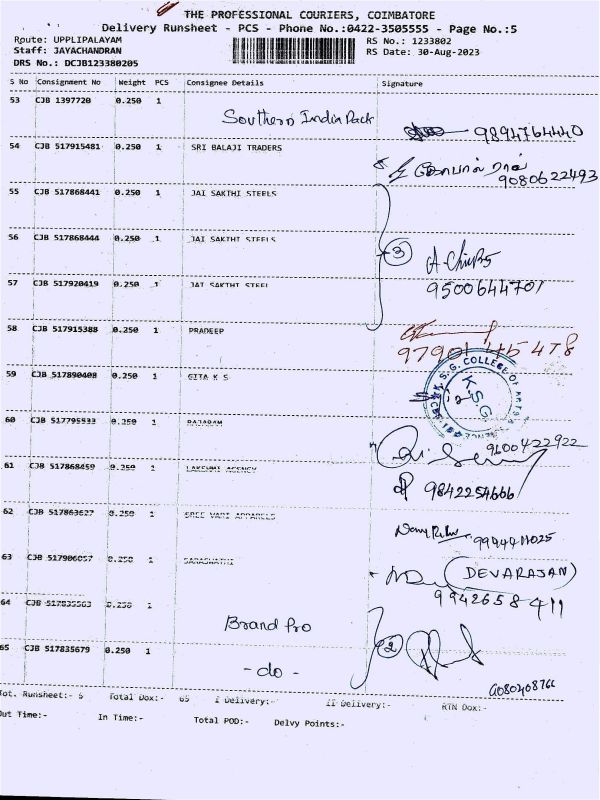 THE PROFESSIONAL COURIERS, COIMBATORE
Delivery Runsheet - PCS - Phone No.:0422-3505555 - Page No.:5
Route: UPPLIPALAYAM
RS No.: 1233802
Staff: JAYACHANDRAN
RS Date: 30-Aug-2023
DRS No.: DCJB123380205
S No Consignment No Weight PCS Consignee Details Signature
53 CJB 1397720 0.250 1 Southern India Pack
9894764440
54 CJB 517915481 0.250 1 SRI BALAJI TRADERS
கோபால்
9080622493
55 CJB 517868441 0.250 1 JAI SAKTHI STEELS
56 CJB 517868444 0.250 1 JAI SAKTHI STEELS
3
57 CJB 517920419 0.250 1 JAI SAKTHI STEEL
9500644701
58 CJB 517915388 0.250 1 PRADEEP
97901 45478
59 CJB 517890408 0.250 1 GITA K S
K.S.G. COLLEGE OF ARTS
K.S.G
60 CJB 517795933 0.250 1 RAJARAM
9600422922
61 CJB 517868459 0.250 1 LAKSHMI AGENCY
9842254666
62 CJB 517863627 0.250 1 SREE VARI APPARELS
9944411025
63 CJB 517906057 0.250 1 SARASWATHI
(DEVARAJAN)
9942658411
64 CJB 517835563 0.250 1 Brand Pro
2
65 CJB 517835679 0.250 1 - do -
Tot. Runsheet:- 5 Total Dox:- 65 I Delivery:- II Delivery:- RTN Dox:-
Out Time:- In Time:- Total POD:- Delvy Points:-